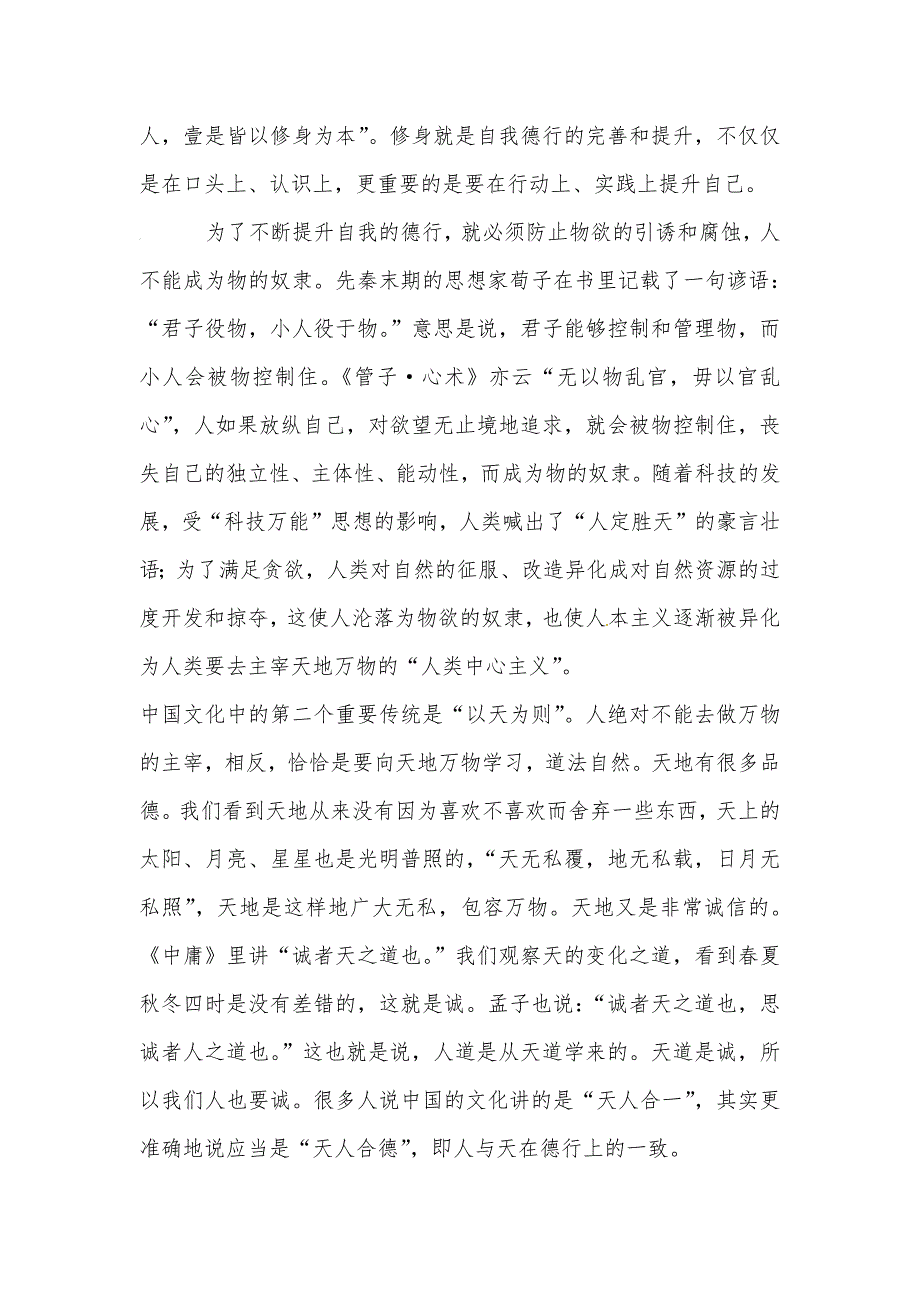 人，壹是皆以修身为本”。修身就是自我德行的完善和提升，不仅仅
是在口头上、认识上，更重要的是要在行动上、实践上提升自己。
为了不断提升自我的德行，就必须防止物欲的引诱和腐蚀，人
不能成为物的奴隶。先秦末期的思想家荀子在书里记载了一句谚语：
“君子役物，小人役于物。”意思是说，君子能够控制和管理物，而
小人会被物控制住。《管子·心术》亦云“无以物乱官，毋以官乱
心”，人如果放纵自己，对欲望无止境地追求，就会被物控制住，丧
失自己的独立性、主体性、能动性，而成为物的奴隶。随着科技的发
展，受“科技万能”思想的影响，人类喊出了“人定胜天”的豪言壮
语；为了满足贪欲，人类对自然的征服、改造异化成对自然资源的过
度开发和掠夺，这使人沦落为物欲的奴隶，也使人本主义逐渐被异化
为人类要去主宰天地万物的“人类中心主义”。
中国文化中的第二个重要传统是“以天为则”。人绝对不能去做万物
的主宰，相反，恰恰是要向天地万物学习，道法自然。天地有很多品
德。我们看到天地从来没有因为喜欢不喜欢而舍弃一些东西，天上的
太阳、月亮、星星也是光明普照的，“天无私覆，地无私载，日月无
私照”，天地是这样地广大无私，包容万物。天地又是非常诚信的。
《中庸》里讲“诚者天之道也。”我们观察天的变化之道，看到春夏
秋冬四时是没有差错的，这就是诚。孟子也说：“诚者天之道也，思
诚者人之道也。”这也就是说，人道是从天道学来的。天道是诚，所
以我们人也要诚。很多人说中国的文化讲的是“天人合一”，其实更
准确地说应当是“天人合德”，即人与天在德行上的一致。